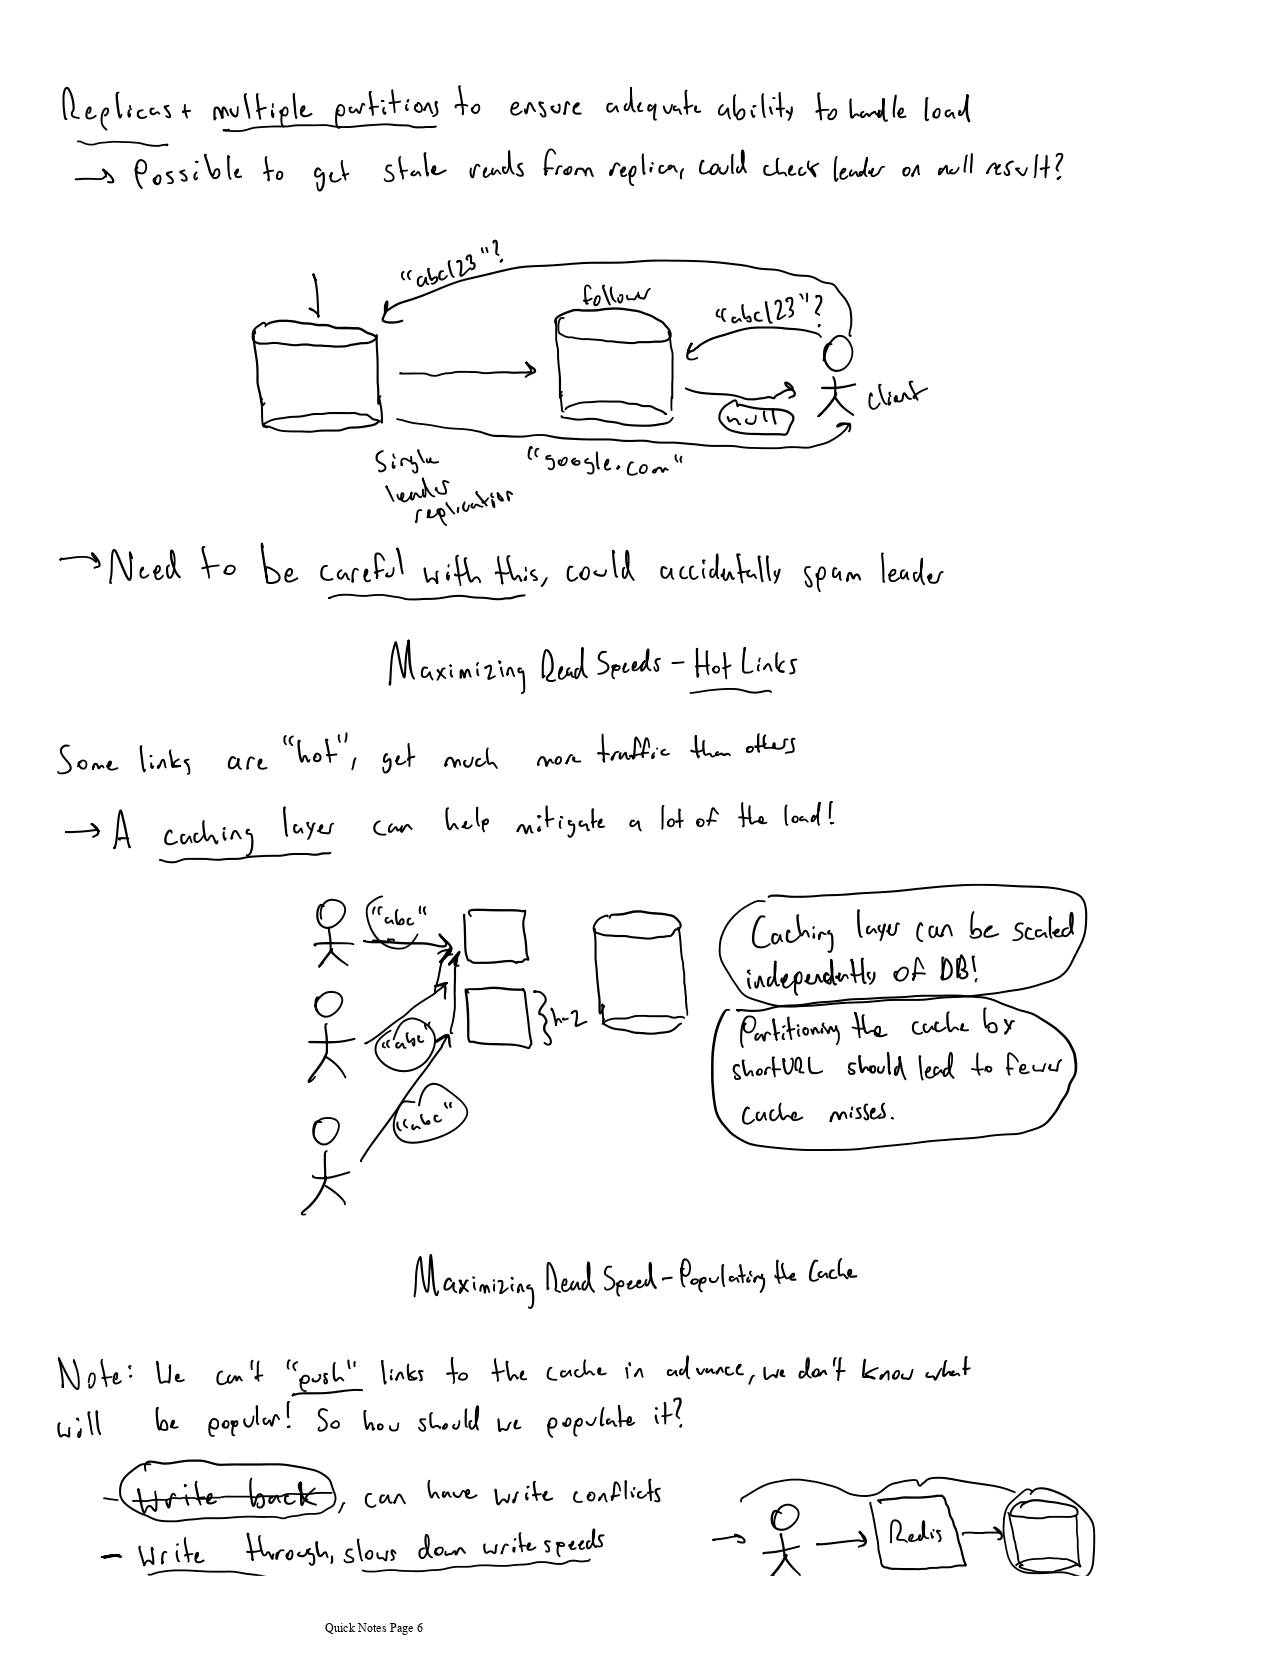 Replicas + multiple partitions to ensure adequate ability to handle load
→ Possible to get stale reads from replica, could check leader on null result?
"abc123"?
follow
"abc123"?
client
null
"google.com"
Single
leader
replication
→ Need to be careful with this, could accidentally spam leader
Maximizing Read Speeds - Hot Links
Some links are "hot", get much more traffic than others
→ A caching layer can help mitigate a lot of the load!
"abc"
Caching layer can be scaled
independently of DB!
"abc"
Partitioning the cache by
shortURL should lead to fewer
cache misses.
"abc"
Maximizing Read Speed - Populating the Cache
Note: We can't "push" links to the cache in advance, we don't know what
will be popular! So how should we populate it?
- Write back, can have write conflicts
- Write through, slows down write speeds
Redis
Quick Notes Page 6